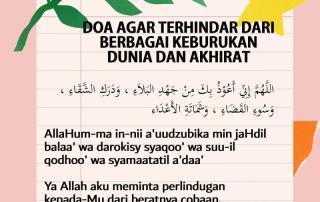 DOA AGAR TERHINDAR DARI
BERBAGAI KEBURUKAN
DUNIA DAN AKHIRAT
اللَّهُمَّ إِنِّي أَعُوْذُ بِكَ مِنْ جَهْدِ الْبَلَاءِ ، وَدَرَكِ الشَّقَاءِ ،
وَسُوءِ الْقَضَاءِ ، وَشَمَاتَةِ الْأَعْدَاءِ
AllaHum-ma in-nii a'uudzubika min jaHdil
balaa' wa darokisy syaqoo' wa suu-il
qodhoo' wa syamaatatil a'daa'
Ya Allah aku meminta perlindungan
kepada-Mu dari beratnya cobaan,